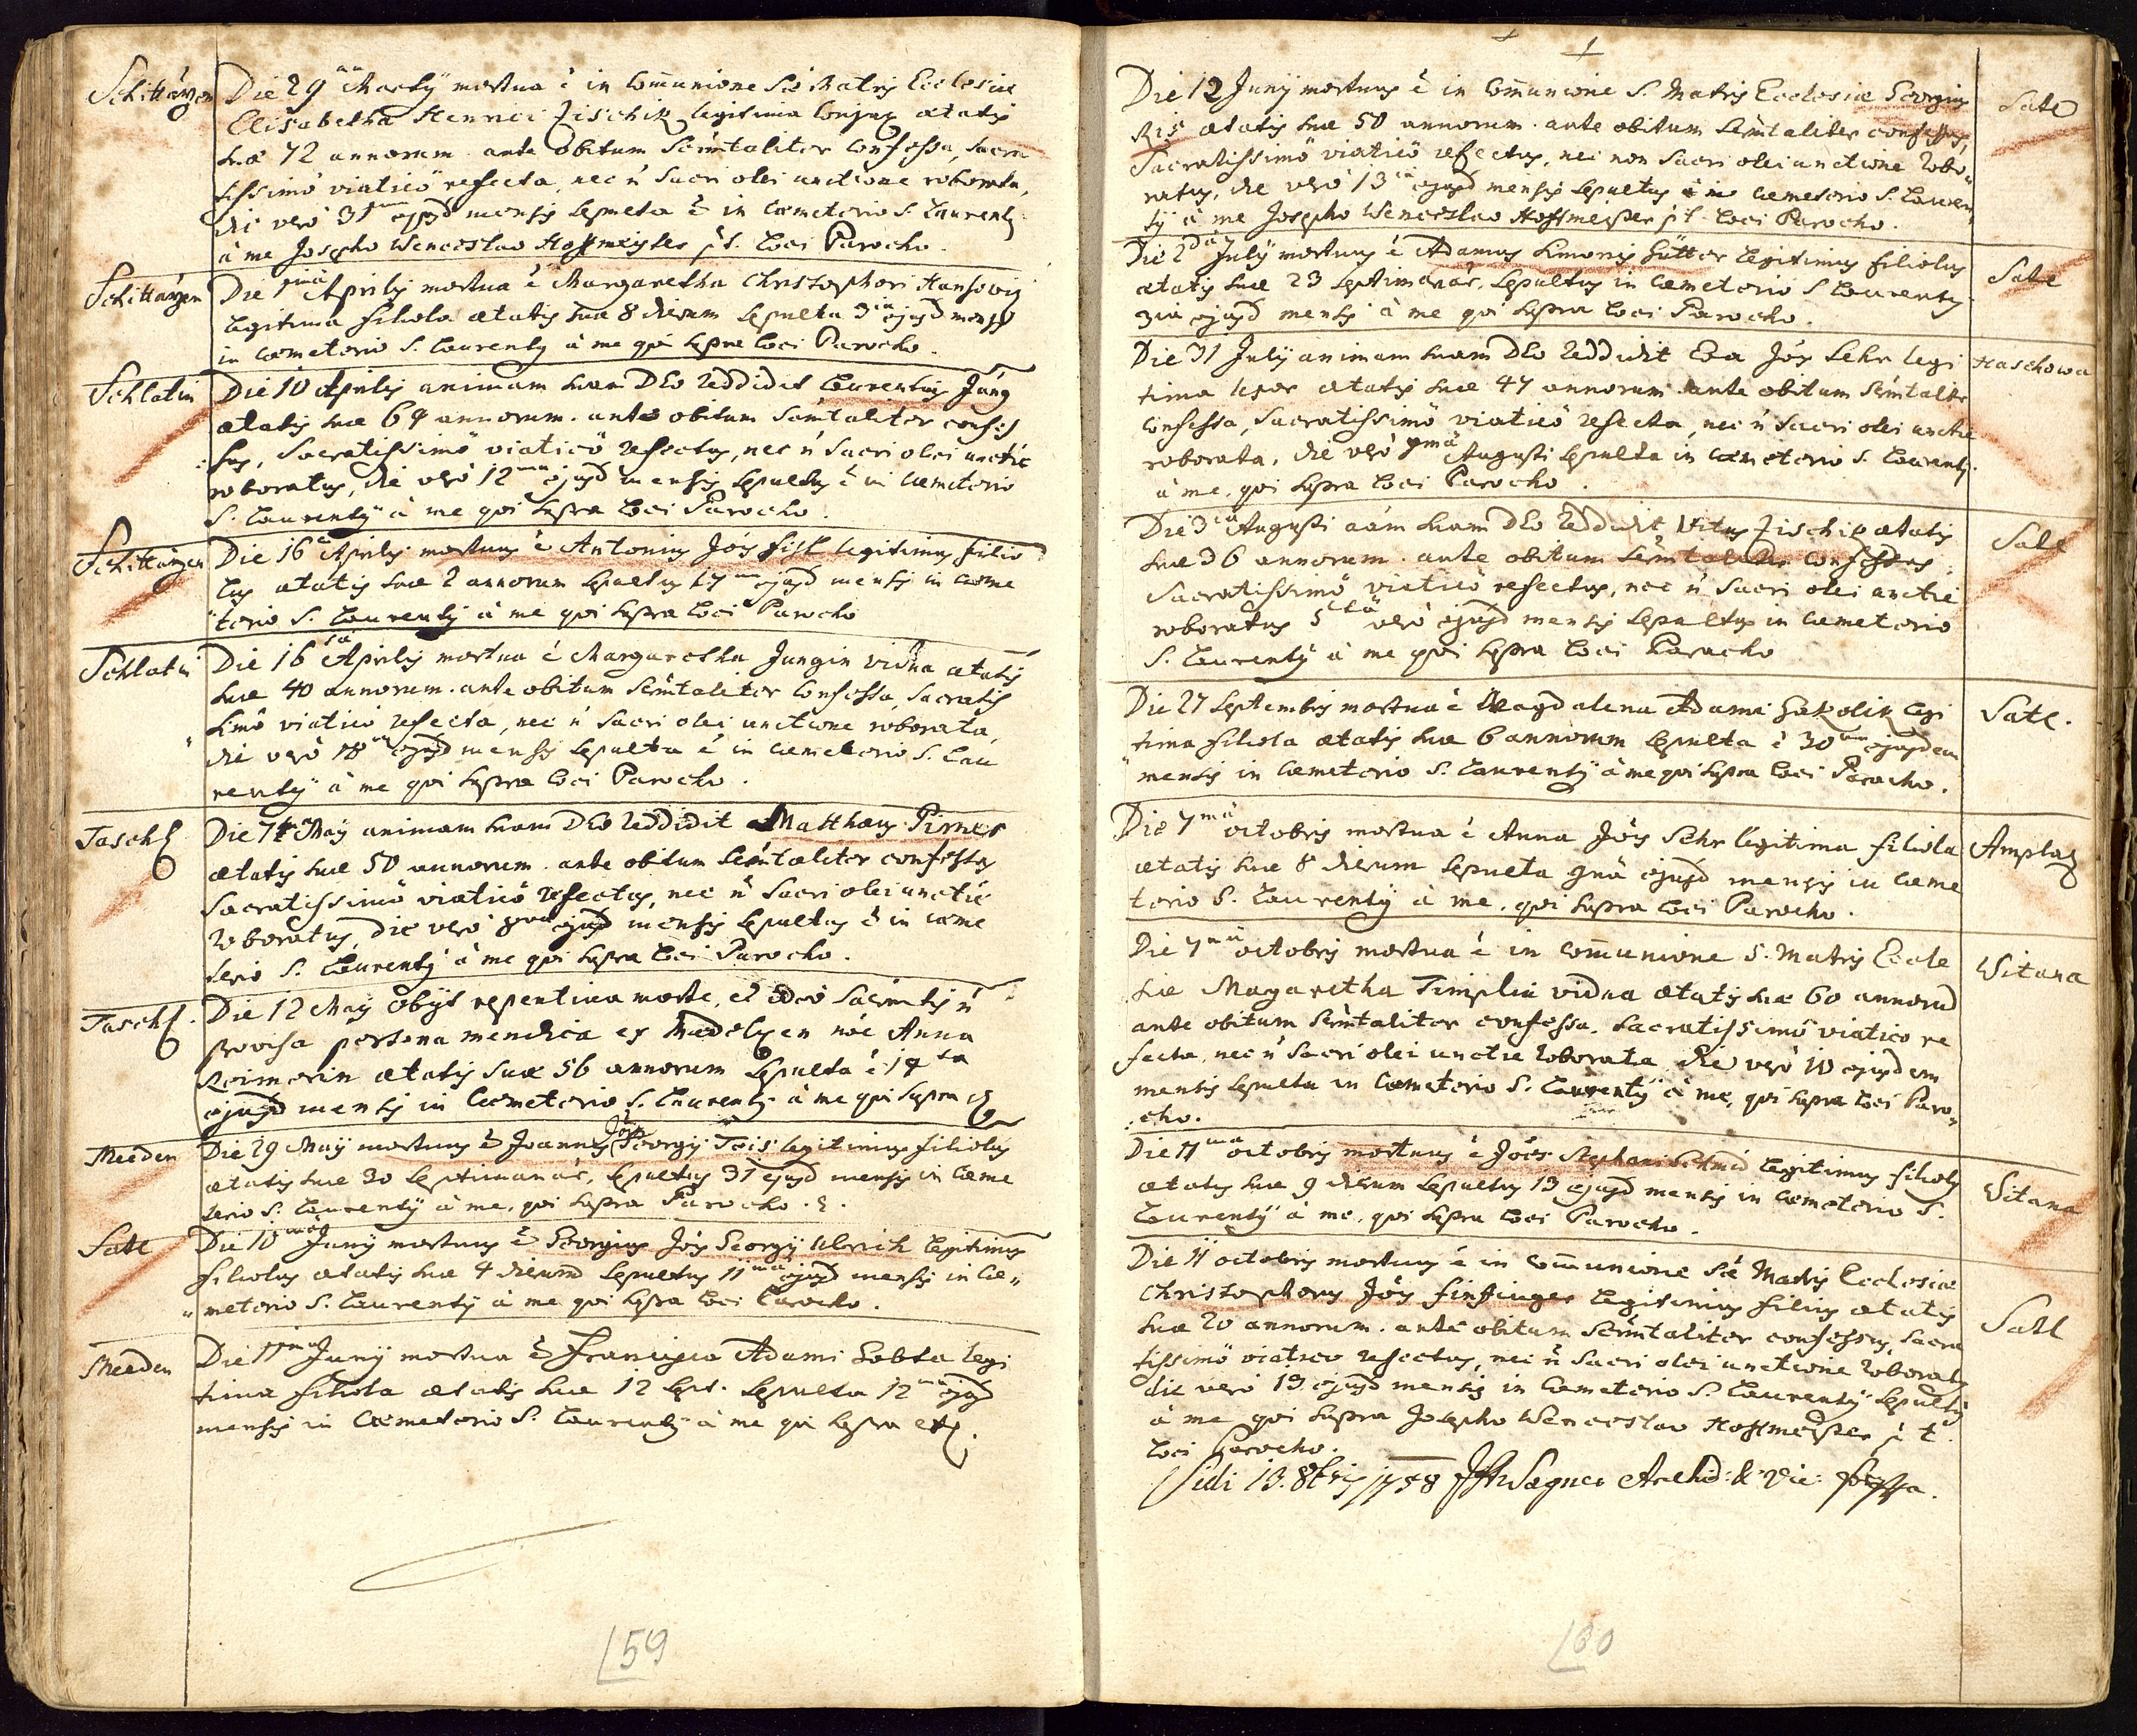 Schittarzen
Die 29 na Martÿ mortua ē in Com̄unione Stae Matris Ecclesiae
Elisabetha Henrici Zischik legitima Conjux aetatis
suae 72 annorum. ante obitum Sacramtaliter Confessa, Sacra
tissimô viaticô refecta, nec ñ Sacri olei unctione roborata,
die verò 31 ejusd mensis Sepulta ē in Coemeterio S. Laurentÿ
à me Josepho Wenceslao Hoffmeister p.t. Loci Parocho.
Schittarzen
Die 1 mâ Aprilis mortua ē Margaretha Christophori
legitima filiola aetatis suae 8 dierum Sepulta 3 ia ejusd mensis
in Coemeterio S. Laurentÿ à me qui supra Loci Parocho.
Schlatin
Die 10 Aprilis animam suam DEO reddidit Laurentius Jung
aetatis suae 64 annorum. ante obitum Sacramtaliter confes
sus, Sacratissimô viaticô refectus, nec ñ Sacri olei unctie
roboratus, die verò 12 ma ejusd mensis Sepultus ē in Coemeterio
S. Laurentÿ à me qui supra Loci Parocho.
Schittarzen
Die 16 Aprilis mortuus ē Antonius Jois legitimus filio
lus aetatis suae 2 annorum Sepultus 17 ma ejusd mensis in Coeme
terio S. Laurentÿ à me qui supra Loci Parocho
Schlatin
Die 16 ta Aprilis mortua ē Margaretha Jungin vidua aetatis
suae 40 annorum. ante obitum Sacramtaliter Confessa, Sacratis
simô viaticô refecta, nec ñ Sacri olei unctione roborata,
die verò 18 ejusd mensis Sepulta ē in Coemeterio S. Lau
rentÿ à me qui supra Loci Parocho.
Taschl
Die 7 Maÿ animam suam DEO reddidit Matthaeus Pirner
aetatis suae 50 annorum. ante obitum Sacramtaliter confessus
Sacratissimô viaticô refectus, nec ñ Sacri olei unctie
roboratus, die verò 8 va ejusd mensis Sepultus ē in Coeme
terio S. Laurentÿ à me qui supra Loci Parocho.
Taschl.
Die 12 Maÿ obijt repentina morte, et ideò Sacramtis ñ
provisa persona mendica ex nōe Anna
Reimerin aetatis suae 56 annorum Sepulta ē 14 ta
ejusd mensis in Coemeterio S. Laurentÿ à me qui supra
Meeden
Die 29 Maÿ mortuus ē Joannes Jois Georgÿ legitimus filiolus
aetatis suae 30 Septimanar, Sepultus 31 ejusd mensis in Coeme
terio S. Laurentÿ à me, qui supra Parocho.
Satl
Die 10 Junÿ mortuus ē Georgius Jois Georgÿ Ulrich legitimus
filiolus aetatis suae 4 dierum Sepultus 11 ma ejusd mensis in Coe„
„meterio S. Laurentÿ à me qui supra Loci Parocho.
Meeden
Die 11 Junÿ mortua ē Francisca Adami legi
tima filiola aetatis suae 12 Sept. Sepulta 12 ejusd
mensis in Coemeterio S. Laurentÿ à me qui supra etc.
59
Die 12 Junÿ mortuus ē in Com̄unione S. Matris Ecclesiae Georgius
Ris aetatis suae 50 annorum. ante obitum Sacramtaliter confessus,
Sacratissimô viaticô refectus, nec non Sacri olei unctione robo„
ratus, die verò 13 ejusd mensis Sepultus ē in Coemeterio S. Lauren„
tÿ à me Josepho Wenceslao Hoffmeister p.t. Loci Parocho.
Satl
Die 2 da Julÿ mortuus ē Adamus Simonis Gütter legitimus filiolus
aetatis suae 23 Septimanar. Sepultus in Coemeterio S Laurentÿ
3ia ejusd mensis à me qui supra Loci Parocho.
Satl
Die 31 Julÿ animam suam DEO reddidit Eva Jois Sehr legi
tima uxor aetatis suae 47 annorum ante obitum Sacramtaliter
Confessa, Sacratissimô viaticô refecta, nec ñ Sacri olei unctie
roborata, die verò Augusti Sepulta in Coemeterio S. Laurentÿ
à me, qui supra Loci Parocho.
Haschowa
Die 3 ia Augusti aām suam DEO reddidit Vitus Zischik aetatis
suae 36 annorum. ante obitum Sacramtaliter Confessus
Sacratissimô viaticô refectus, nec ñ Sacri olei unctie
roboratus 5 ta verò ejusd mensis Sepultus in Coemeterio
S. Laurentÿ à me qui supra Loci Parocho
Satl
Die 27 Septembris mortua ē Magdalena Adami legi
tima filiola aetatis suae 6 annorum Sepulta ē 30 ma ejusdem
mensis in Coemeterio S. Laurentÿ à me qui supra Loci Parocho.
Satl.
Die 7 mâ octobris mortua ē Anna Jois Sehr legitima filiola
aetatis suae 8 dierum Sepulta 9nâ ejusd mensis in Coeme
terio S. Laurentÿ à me, qui supra Loci Parocho.
Amplaz
Die 7 mâ octobris mortua ē in Com̄unione S. Matris Eccle
siae Magaretha Timplin vidua aetatis suae 60 annorum
ante obitum Sacramtaliter confessa. Sacratissimô viatico re
fecta, nec ñ Sacri olei unctie roborata die verò 10 ejusdem
mensis Sepulta in Coemeterio S. Laurentÿ à me, qui supra Loci Paro„
cho.
Witana
Die 11 ma octobris mortuus ē Joes Stephani Schmid legitimus filiolus
aetatis suae 9 dierum Sepultus 13 ejusd mensis in Coemeterio S.
Laurentÿ à me, qui supra Loci Parocho.
Witana
Die 11 octobris mortuus ē in Com̄unione Stae Matris Ecclesiae
Christophorus Jois Finfinger legitimus filius aetatis
suae 20 annorum. ante obitum Sacramtaliter confessus, Sacra
tissimô viatico refectus, nec ñ Sacri olei unctione roboratus
die verò 13 ejusd mensis in Coemeterio S. Laurentÿ Sepultus
à me qui supra Josepho Wenceslao Hoffmeister p t
Loci Parocho.
Satl
Vidi 13. 8bris 1758 Wagner Archid: & Vic:
60